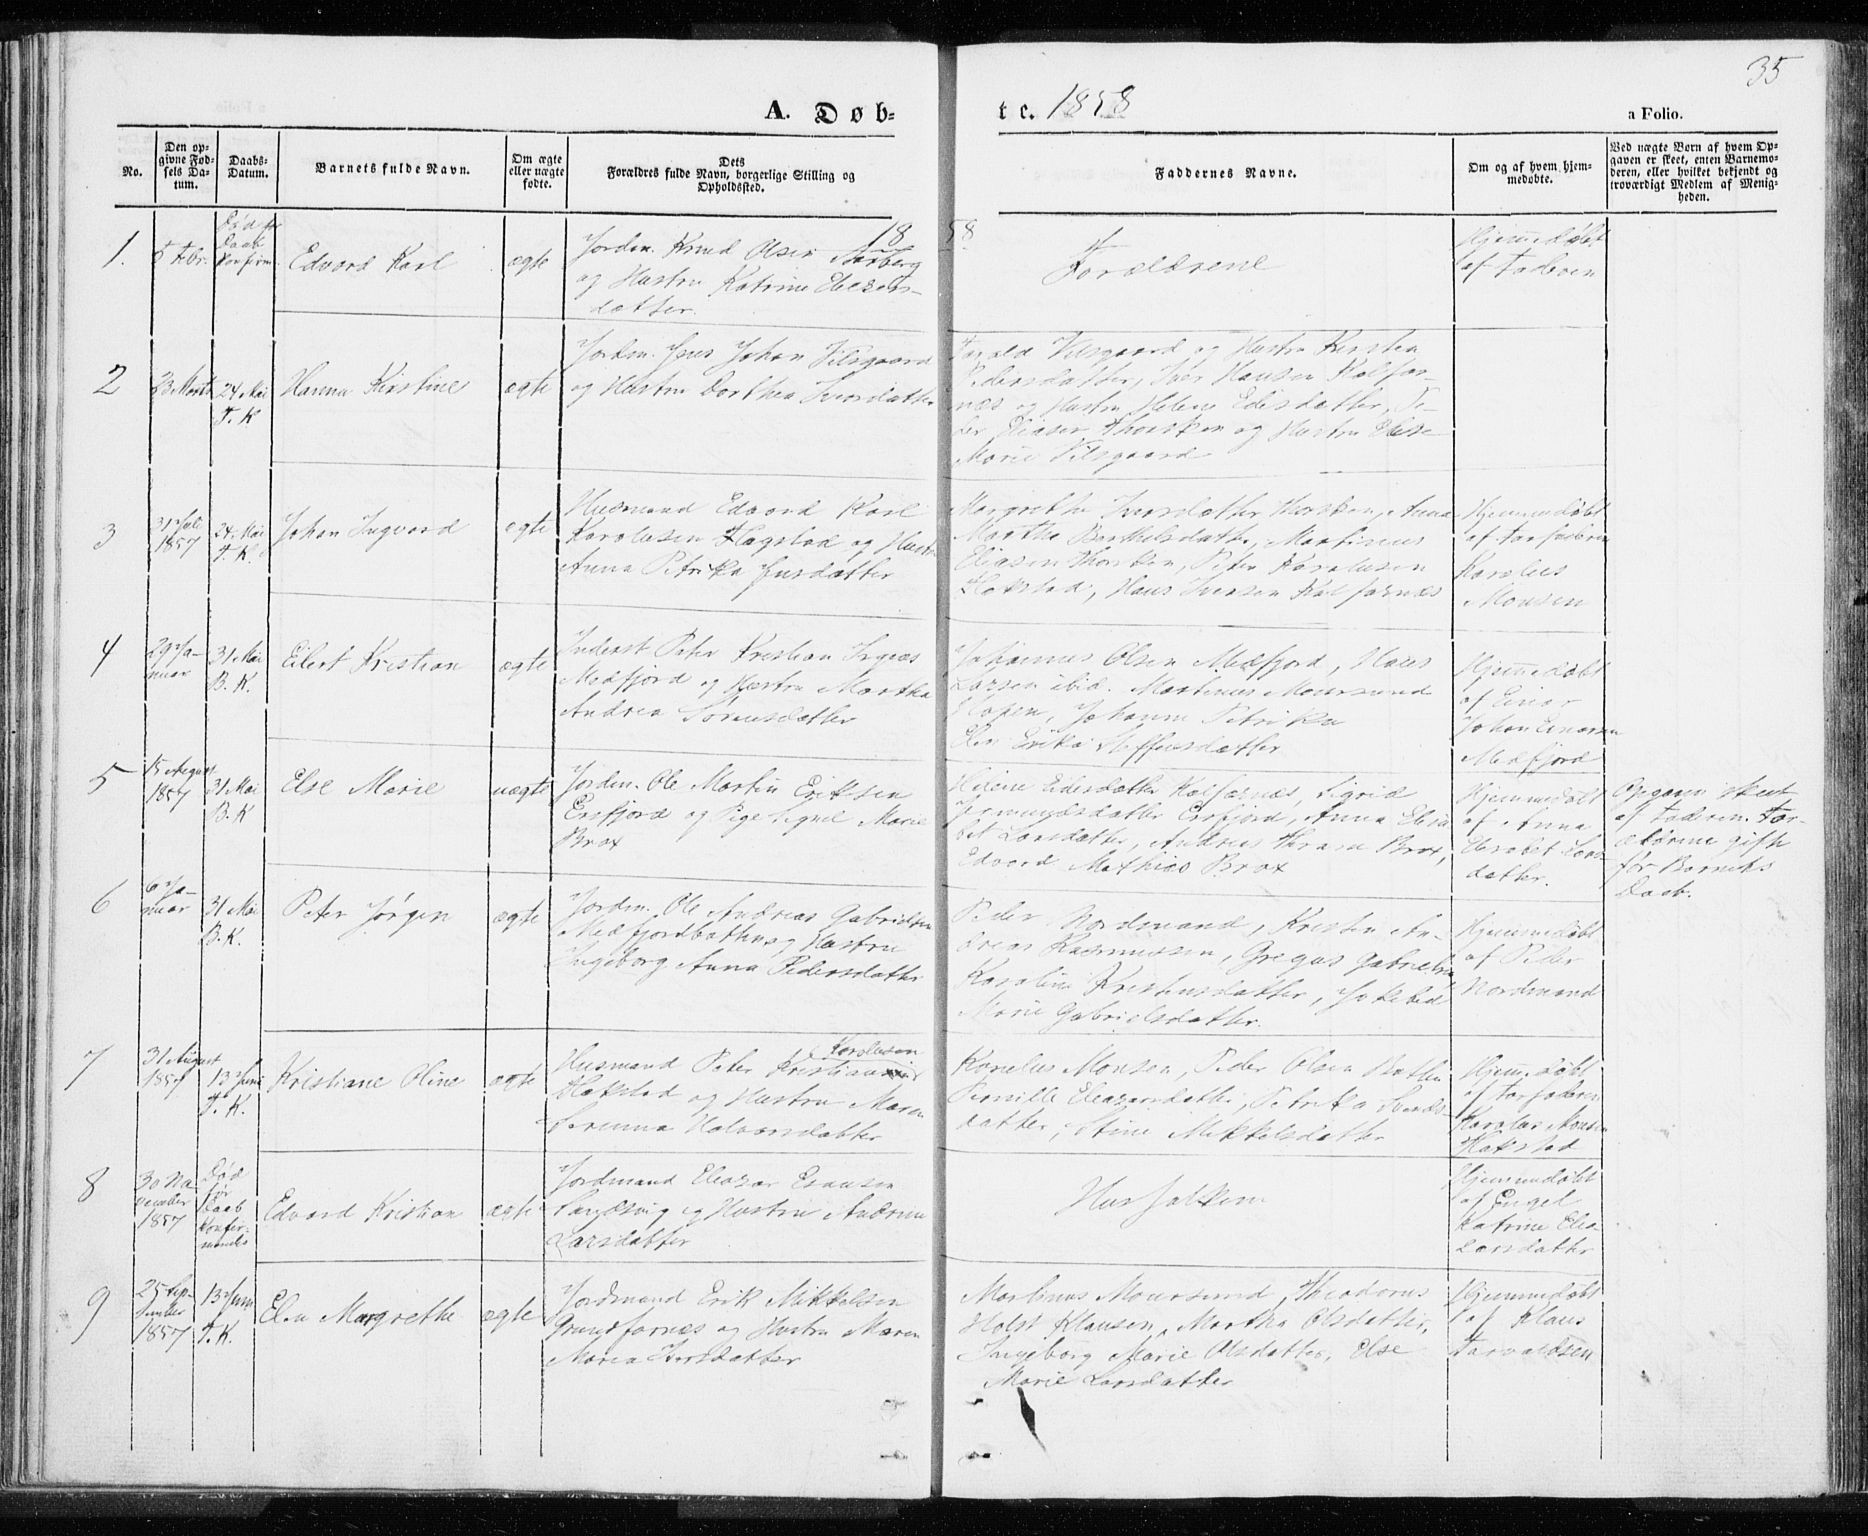 35
A. Døb-
te. 1858
a Folio.
No.
Den op-
givne Fød-
sels Da-
tum.
Daabs-
Datum.
Barnets fulde Navn.
Om ægte
eller uægte
fødte.
Dets
Forældres fulde Navn, borgerlige Stilling og
Opholdssted.
Faddernes Navne.
Om og af hvem hjem-
medøbte.
Ved uægte Børn af hvem Op-
gaven er skeet, enten Barnemo-
deren, eller hvilket bekjendt og
troværdigt Medlem af Menig-
heden.
1858
1.
Død før
Daab
Edvard Karl
ægte
Jordm. Knud Olsen
og Hustru Katrine Eleazers-
datter.
Forældrene
Hjemmedøbt
af Faderen
2
23 Marts
24 Mai
T. K
Hanna Kirstine
ægte
Jordm. Jens Johan Vilsgaard
og Hustru Dorthea Iversdatter
Vilsgaard og Hustru Kirsten
Pedersdatter, Iver Hansen Kalfar-
næs og Hustru Helene Edisdatter, Pe-
der Eliasen Thorsken og Hustru Else
Marie Vilsgaard
3
31 Juli
1857
24 Mai
T. K.
Johan Ingvard
ægte
Husmand Edvard Karl
Karolusen Hagstad og Hustru
Anna Petrika Jensdatter
Margrethe Iversdatter Thorsken, Anna
Martha Barthelsdatter, Martinus
Eliasen Thorsken, Peter Karolusen
Hakstad, Hans Iversen Kalfarnæs
Hjemmedøbt
af Farfaderen
Karolus
Monsen
4
29 Ja-
nuar
31 Mai
B. K.
Eilert Kristian
ægte
Inderst Peter Kristian
Medfjord og Hustru Martha
Andrea Sørensdatter
Johannes Olsen Medfjord, Hans
Larsen ibid. Martinus Moursund
Hopen, Johanne Petrika
Elen Erika Steffensdatter
Hjemmedøbt
af Einar
Johan Einarsen
Medfjord
5
15 August
1857
31 Mai
B. K
Else Marie
uægte
Jordm. Ole Martin Eriksen
Ersfjord og Pige Signel Marie
Brox
Helene Edisdatter Kalfarnæs, Sigrid
Ersfjord, Anna Elisa-
bet Larsdatter, Andreas Brox,
Edvard Mathias Brox
Hjemmedøbt
af Anna
Elisabet Lars-
datter.
Opgaven skeet
af Faderen. For-
ældrene gift
før Barnets
Daab.
6
6 Ja-
nuar
31 Mai
B. K.
Peter Jørgen
ægte
Jordm. Ole Andreas Gabrielsen
Medfjordbotten og Hustru
Ingeborg Anna Pedersdatter
Peder Nordmand, Kristen An-
dreas Rasmussen, Gregus Gabrielsen
Karoline Kristensdatter, Jakobed
Marie Gabrielsdatter.
Hjemmedøbt
af Peder
Nordmand
7
31 August
1857
13 Juni
T. K.
Kristiane Oline
ægte
Husmand Peter Kristian Karolusen
Hakstad og Hustru Maren
Serenna Halvorsdatter
Karolus Monsen, Peder Olsen Botten
Pernille Eleazarsdatter, Petrika
datter, Stine Mikkelsdatter
Hjemmedøbt
af Farfaderen
Karolus Monsen
Hakstad
8
30 No-
vember
1857
Død
før
Daab
Konfir-
meredes
Edvard Kristian
ægte
Jordmand Eleazar Esausen
og Hustru Andrina
Larsdatter
Husfolkene
Hjemmedøbt
af Engel
Katrine Elea
Larsdatter
9
25 Sep-
tember
1857
13 Juni
T. K.
Elen Margrethe
ægte
Jordmand Erik Mikkelsen
Grundfarnæs og Hustru Maren
Maria Iversdatter
Martinus Moursund, Theodorus
Holst Klausen, Martha Olsdatter,
Ingeborg Marie Olsdatter, Else
Marie Larsdatter
Hjemmedøbt
af Klaus
Tarvaldsen